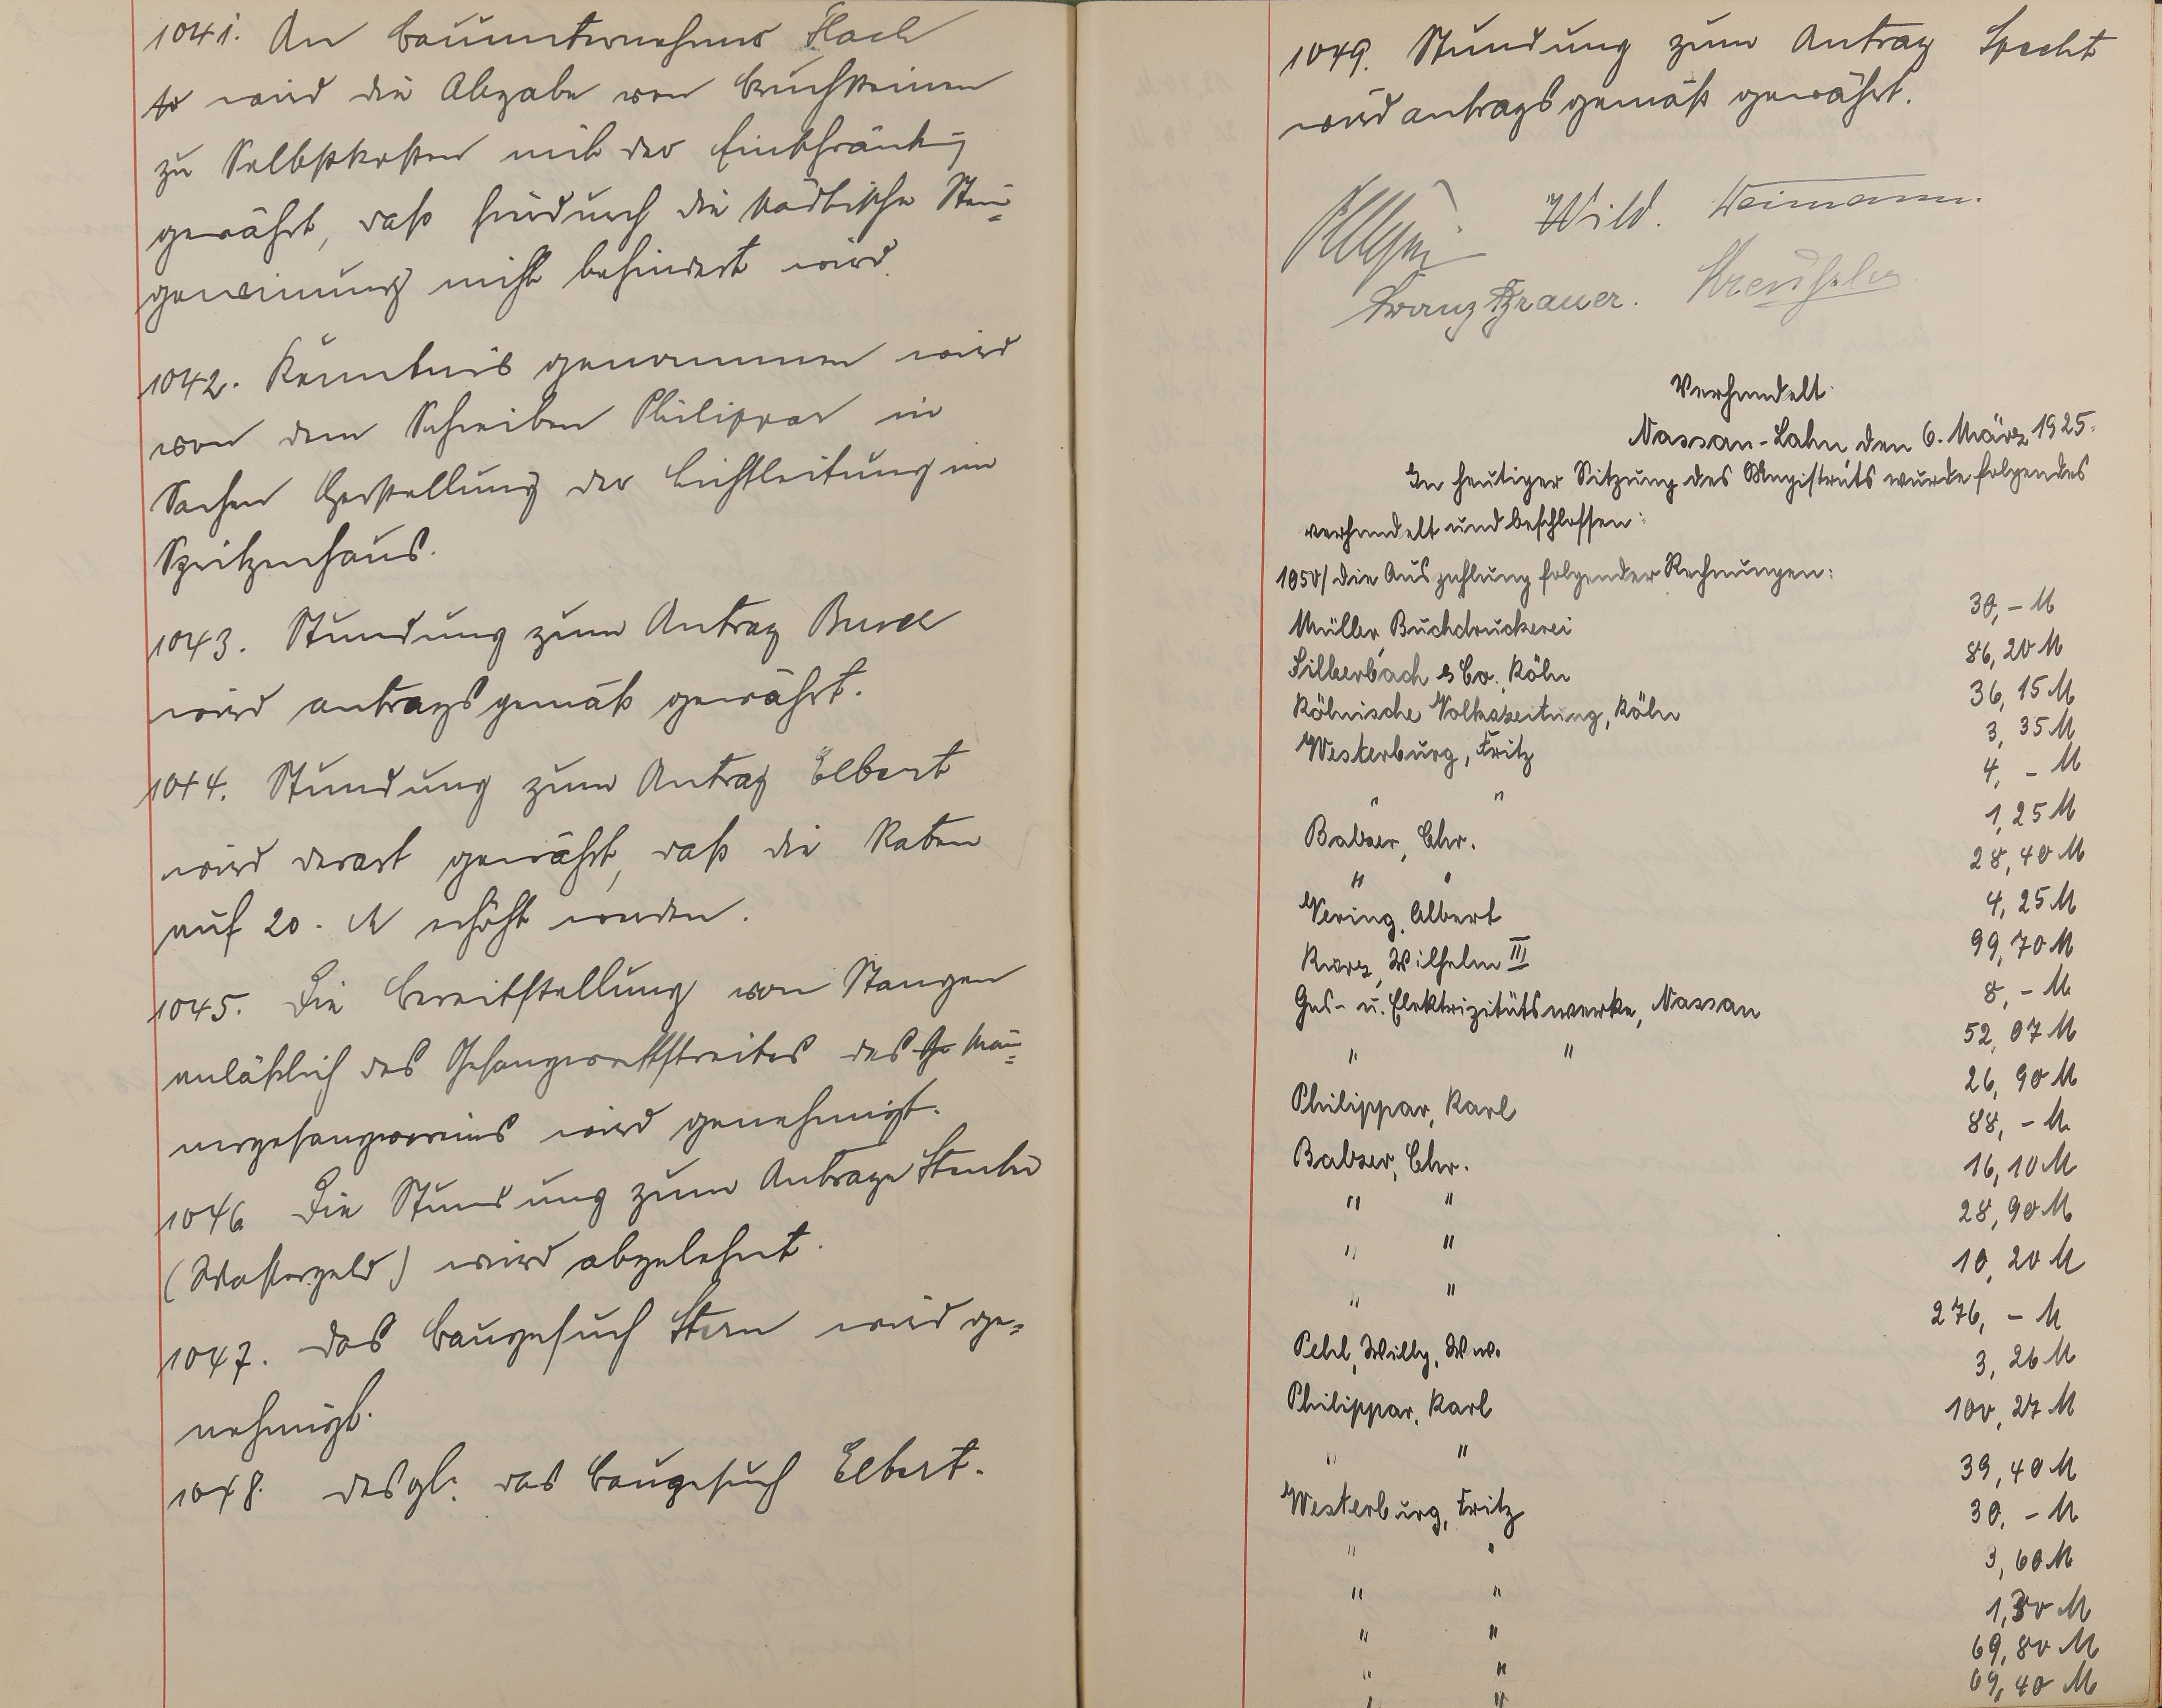 1041. An Bauunternehmer Flach
wird die Abgabe von Bruchsteinen
zu Selbstkosten mit der Einschränkg
gewährt, daß hierdurch die städtische Stein=
gewinnung nicht behindert wird.
1042. Kenntnis genommen wird
von dem Schreiben Philippar in
Sachen Herstellung der Lichtleitung im
Spritzenhaus.
1043. Stundung zum Antrag
wird antragsgemäß gewährt.
1044. Stundung zum Antrag Elbert
wird derart gewährt, daß die Raten
auf 20.- M erhöht werden.
1045. Die Bereitstellung von Stangen
anläßlich des Gesangwettstreites des Män=
nergesangvereins wird genehmigt.
1046 Die Stundung zum Antrage
(Wassergeld) wird abgelehnt.
1047. Das Baugesuch Stern wird ge=
nehmigt.
1048. desgl. das Baugesuch Elbert.
1049. Stundung zum Antrag Specht
wird antragsgemäß gewährt.
Wild. Weimann.
Franz Brauer.
Verhandelt
Nassau-Lahn den 6. März 1925.
In heutiger Sitzung des Magistrats wurde folgendes
verhandelt und beschlossen:
1050/ die Auszahlung folgender Rechnungen:
Müller, Buchdruckerei 30,- M
Silberbach & Co., Köln 86,20 M
Kölnische Volkszeitung, Köln 36,15 M
Westerburg, Fritz 3,35 M
" " 4,- M
Balzer, Chr. 1,25 M
" " 28,40 M
Vering, Albert 4,25 M
Kurz, Wilhelm III 99,70 M
Gas- u. Elektrizitätswerke, Nassau 8,- M
" " 52,07 M
Philippar, Karl 26,90 M
Balzer, Chr. 88,- M
" " 16,10 M
" " 28,90 M
" " 10,20 M
Pehl, Willy, Ww. 276,- M
Philippar, Karl 3,26 M
" " 100,27 M
Westerburg, Fritz 39,40 M
" " 30,- M
" " 3,60 M
" " 1,30 M
" " 69,80 M
" " 69,40 M